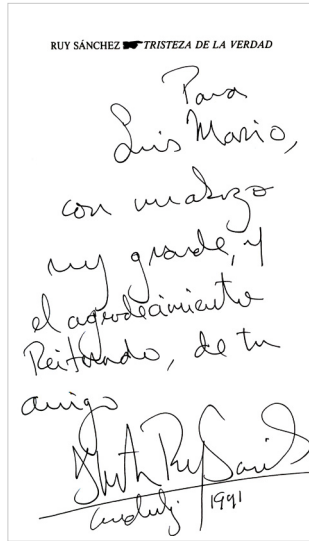 RUY SÁNCHEZ TRISTEZA DE LA VERDAD
Para
Luis Mario,
con un abrazo
muy grande, y
el agradecimiento
Reiterado, de tu
amigo
Ruy Sánchez
1991